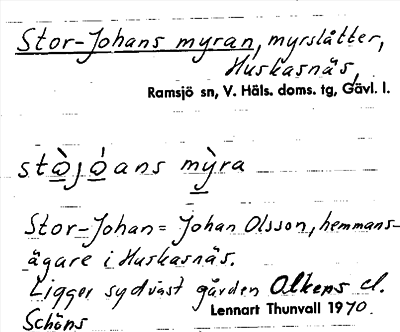 Stor-Johans myran, myrslåtter,
Huskasnäs,
Ramsjö sn, V. Häls. doms. tg, Gävl. l.
stɷ̀jɷ́ans mỳra
Stor-Johan = Johan Olsson, hemmans-
ägare i Huskasnäs.
Ligger sydväst gården Olkens el.
Lennart Thunvall 1970.
Schöns